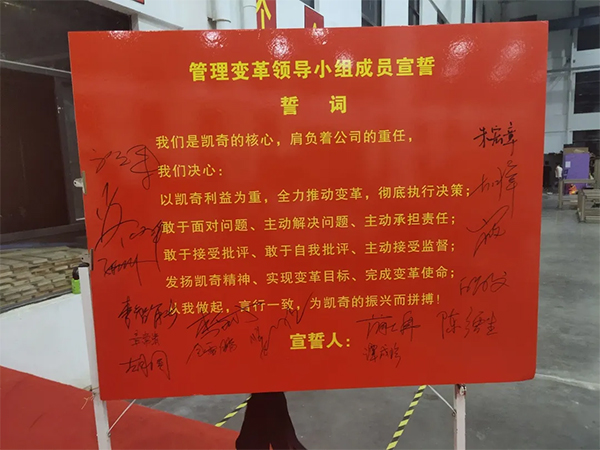 管理变革领导小组成员宣誓
誓 词
我们是凯奇的核心，肩负着公司的重任，
我们决心：
以凯奇利益为重，全力推动变革，彻底执行决策；
敢于面对问题、主动解决问题、主动承担责任；
敢于接受批评、敢于自我批评、主动接受监督；
发扬凯奇精神、实现变革目标、完成变革使命；
从我做起，言行一致，为凯奇的振兴而拼搏！
宣誓人：